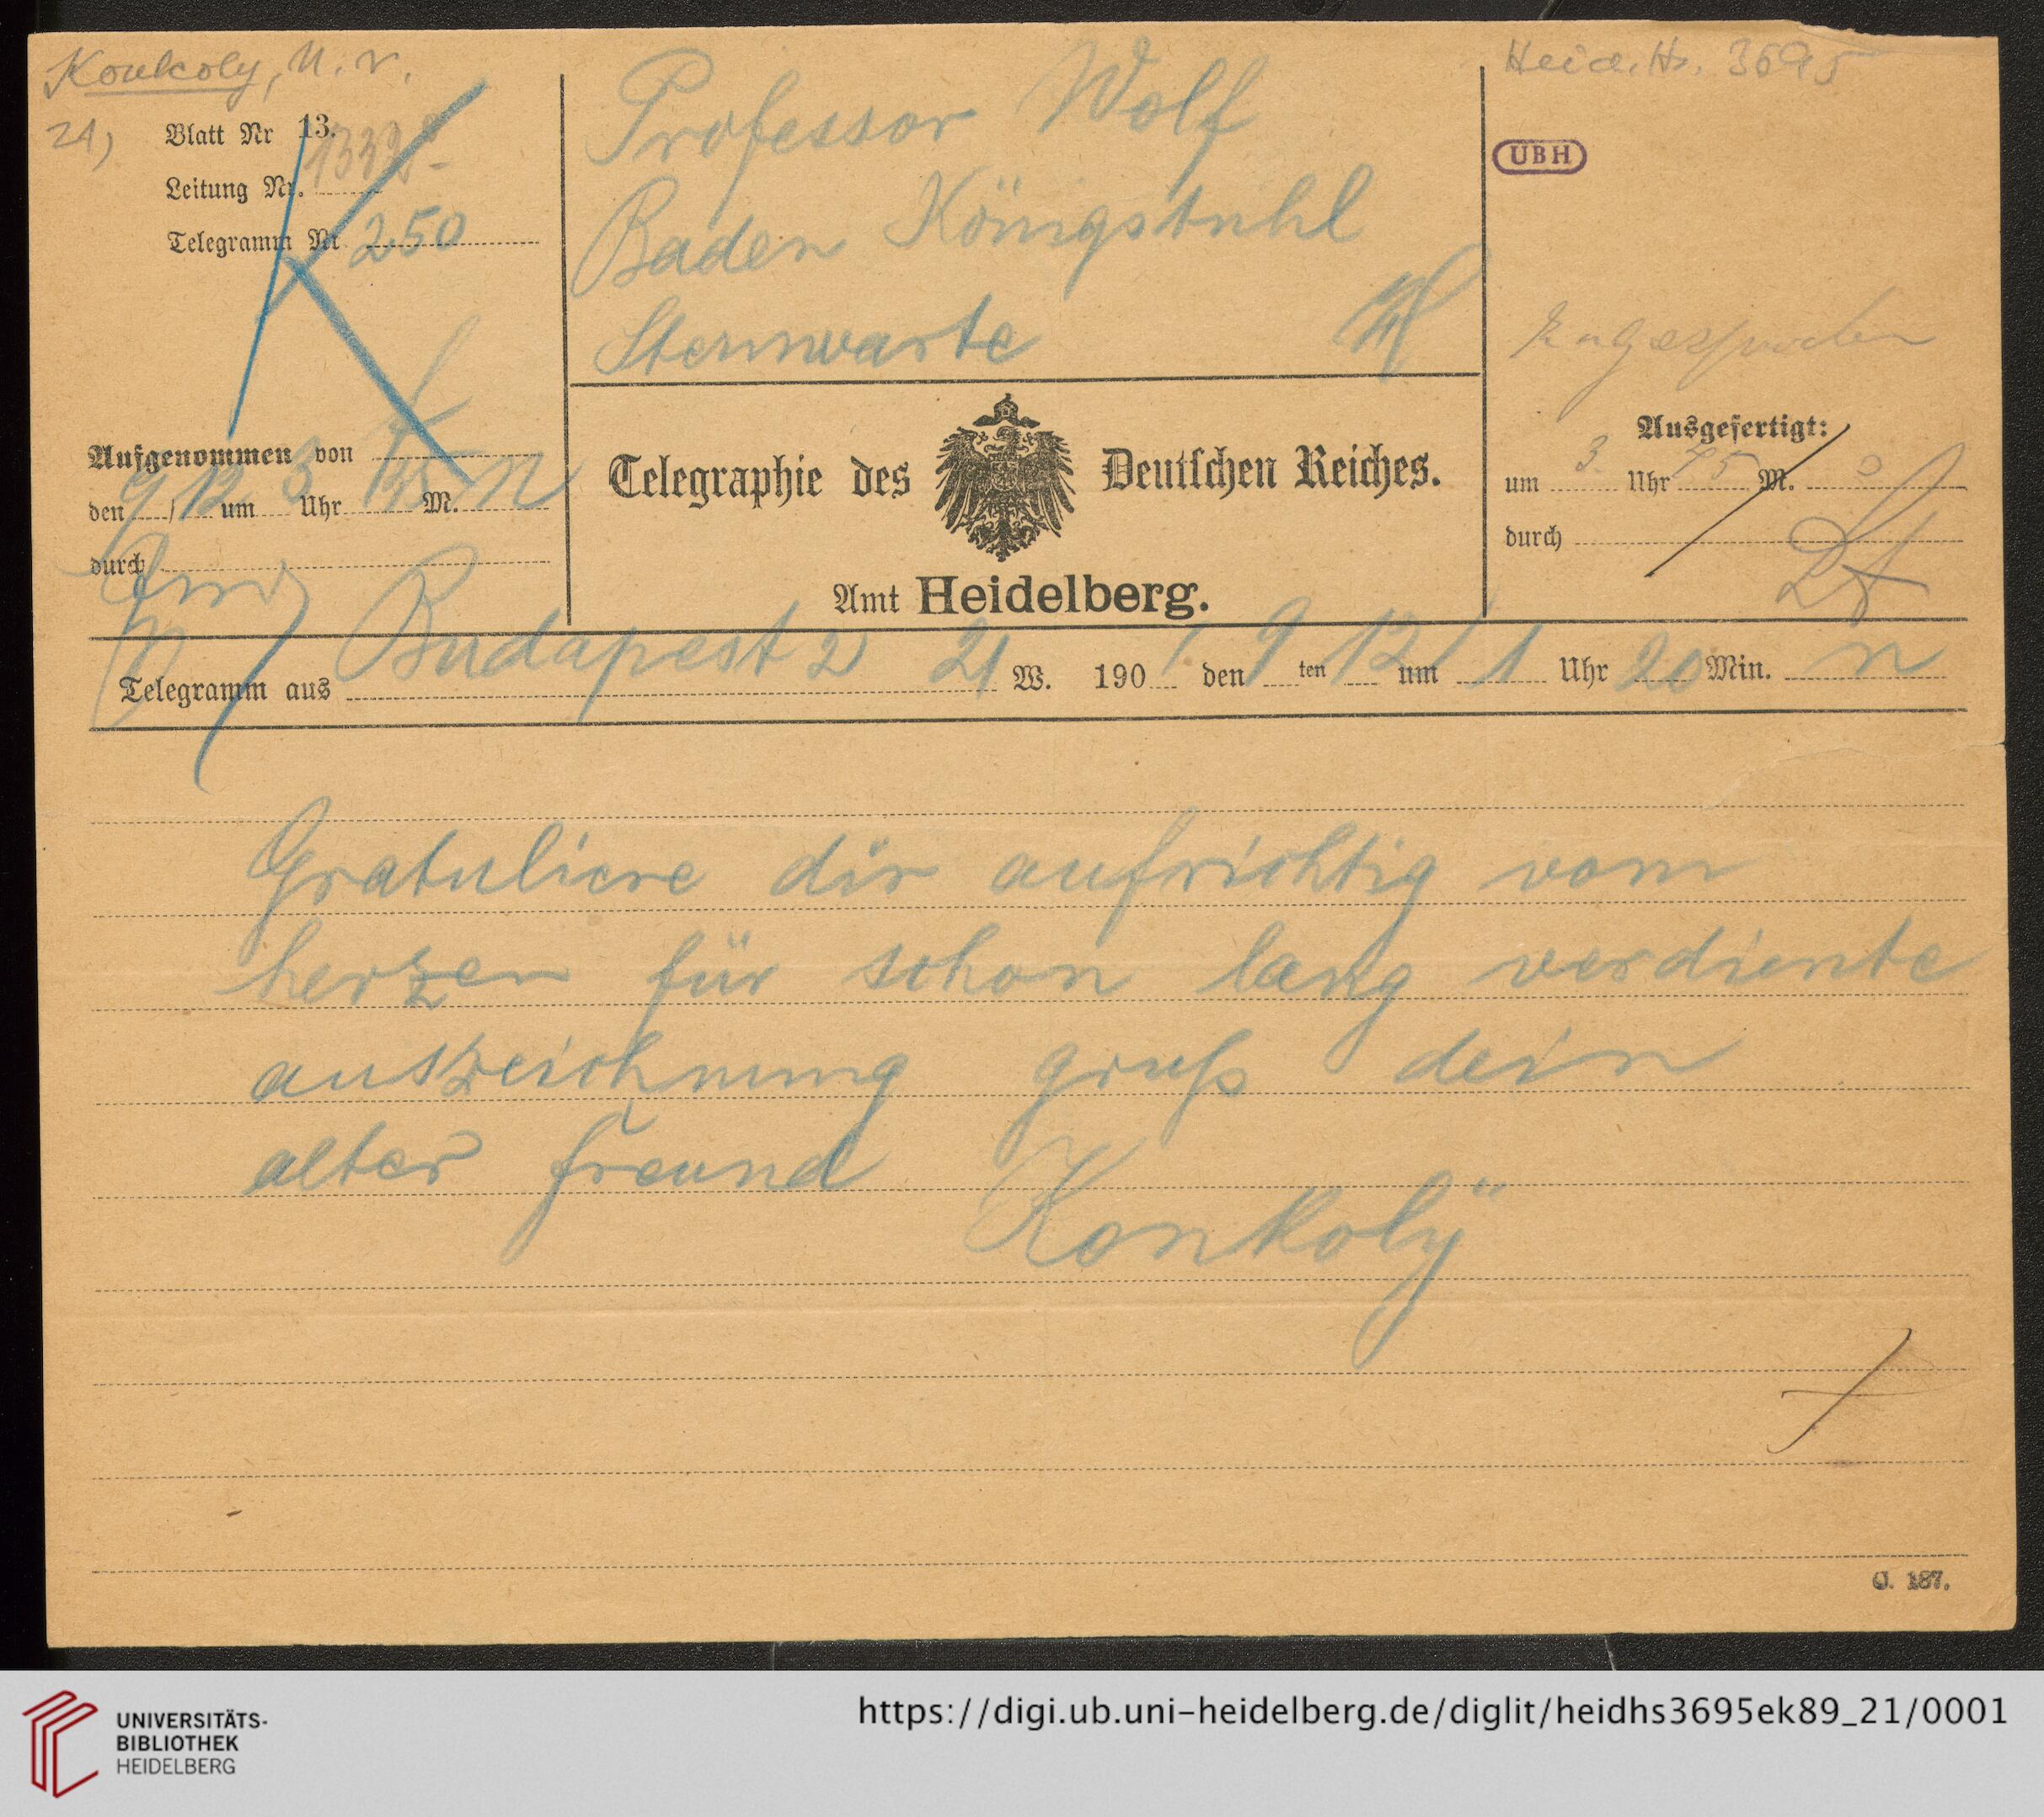 Konkoly, N. v.
21)
Heid. Hs. 3695
UBH
Blatt Nr 13.
Leitung Nr.
Telegramm Nr 250
Professor Wolf
Baden Königstuhl
Sternwarte
Zugesprochen
Aufgenommen von
den 9/12 um 3 Uhr 45 M. n
durch
Telegraphie des Deutschen Reiches.
Amt Heidelberg.
Ausgefertigt:
um 3 Uhr 45 M.
durch
Telegramm aus Budapest 2 21 W. 190 den 9 ten 12 um 1 Uhr 20 Min. n
Gratuliere dir aufrichtig vom
herzen für schon lang verdiente
auszeichnung gruß dein
alter freund
Konkoly"
C. 187.
UNIVERSITÄTS-
BIBLIOTHEK
HEIDELBERG
https://digi.ub.uni-heidelberg.de/diglit/heidhs3695ek89_21/0001